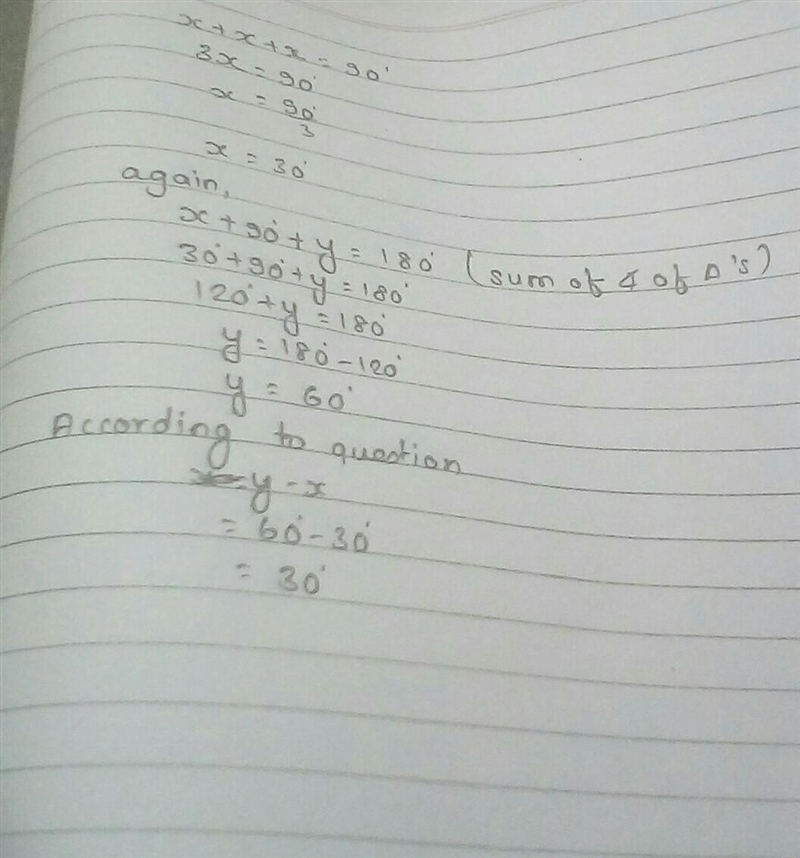 x + x + x = 90°
3x = 90°
x = 90°/3
x = 30°
again,
x + 90° + y = 180° (sum of ∡ of Δ's)
30° + 90° + y = 180°
120° + y = 180°
y = 180° - 120°
y = 60°
According to question
y - x
= 60° - 30°
= 30°